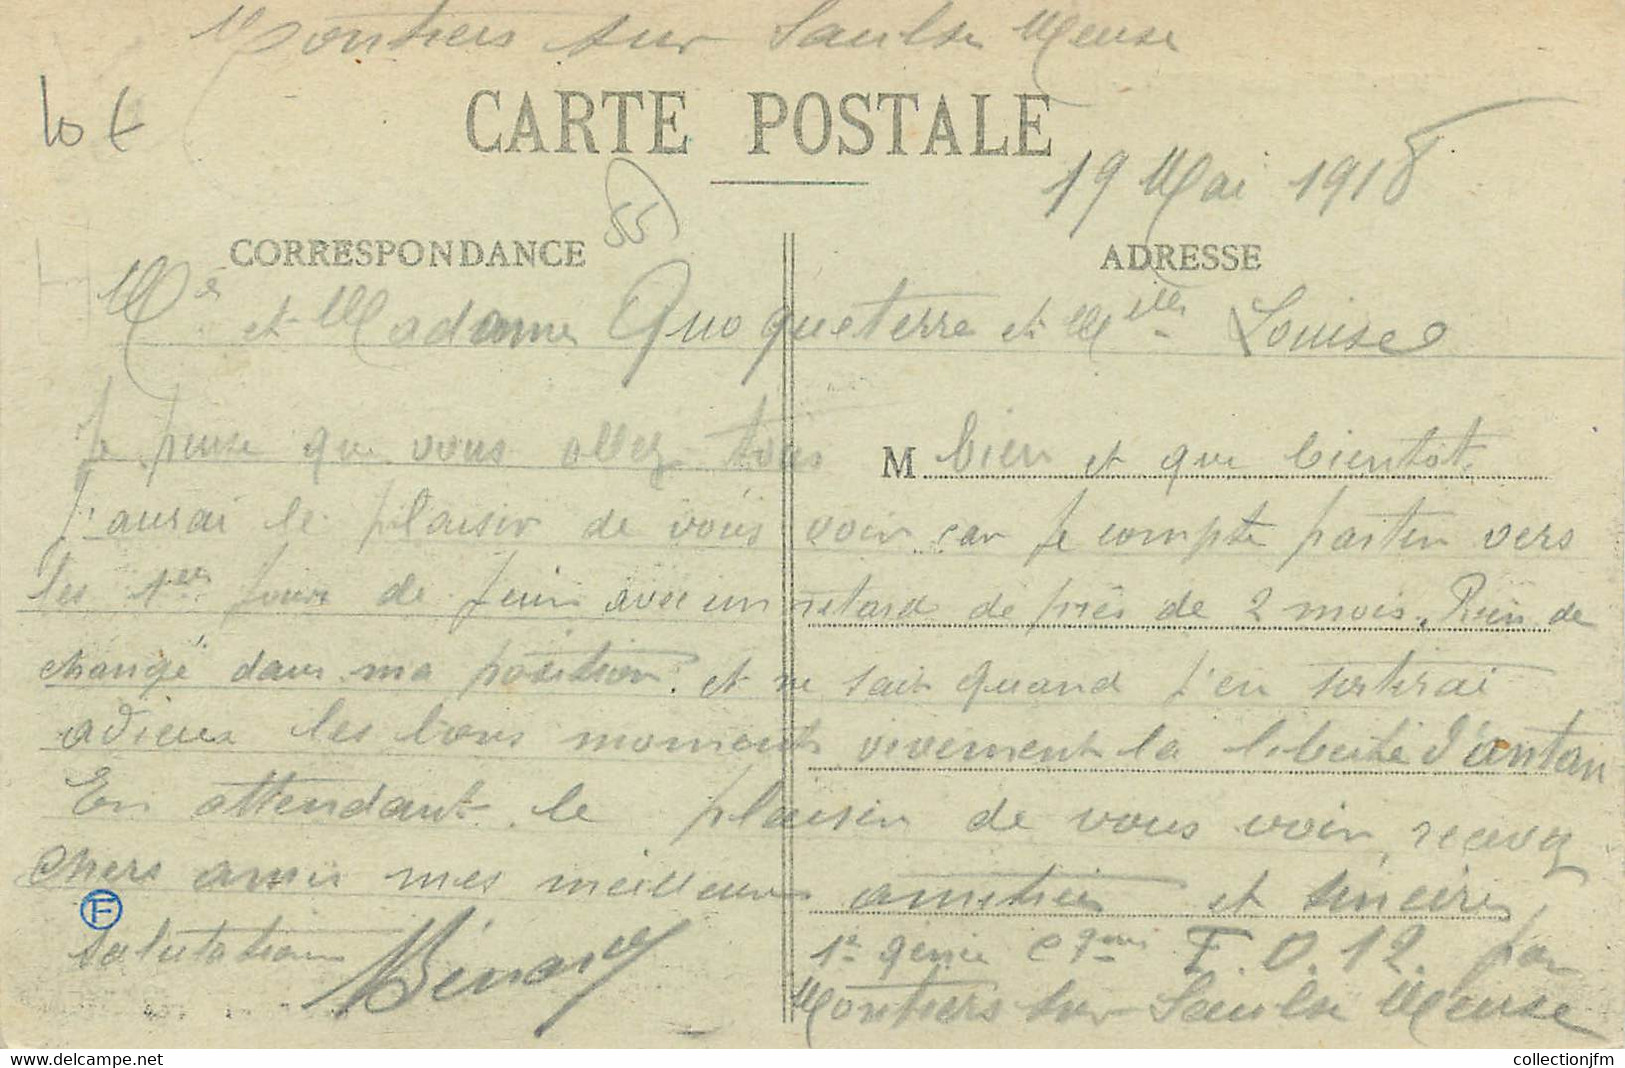 Montiers sur Saulse Meuse
10 €
CARTE POSTALE
19 Mai 1918
55
CORRESPONDANCE
ADRESSE
Mr et Madame Quoqueterre et Melle Louise
Je pense que vous allez tous M bien et que bientot
J'aurai le plaisir de vous voir car Je compte partir vers
les 1er Jours de Juin avec un retard de près de 2 mois. Rien de
changé dans ma position. et ne sait quand J'en sortirai
adieux les bons moments vivement la liberté d'antan
En attendant le plaisir de vous voir, recevez
chers amis mes meilleures amitiés et sincères
F
salutations Bénard
1e génie T. O. 12. par
Montiers sur Saulse Meuse
collectionjfm